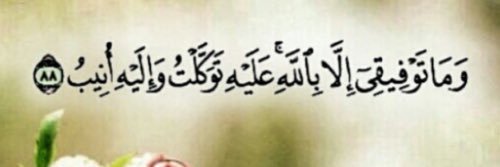 وَمَا تَوْفِيقِىٓ إِلَّا بِٱللَّهِ ۚ عَلَيْهِ تَوَكَّلْتُ وَإِلَيْهِ أُنِيبُ ﴿٨٨﴾